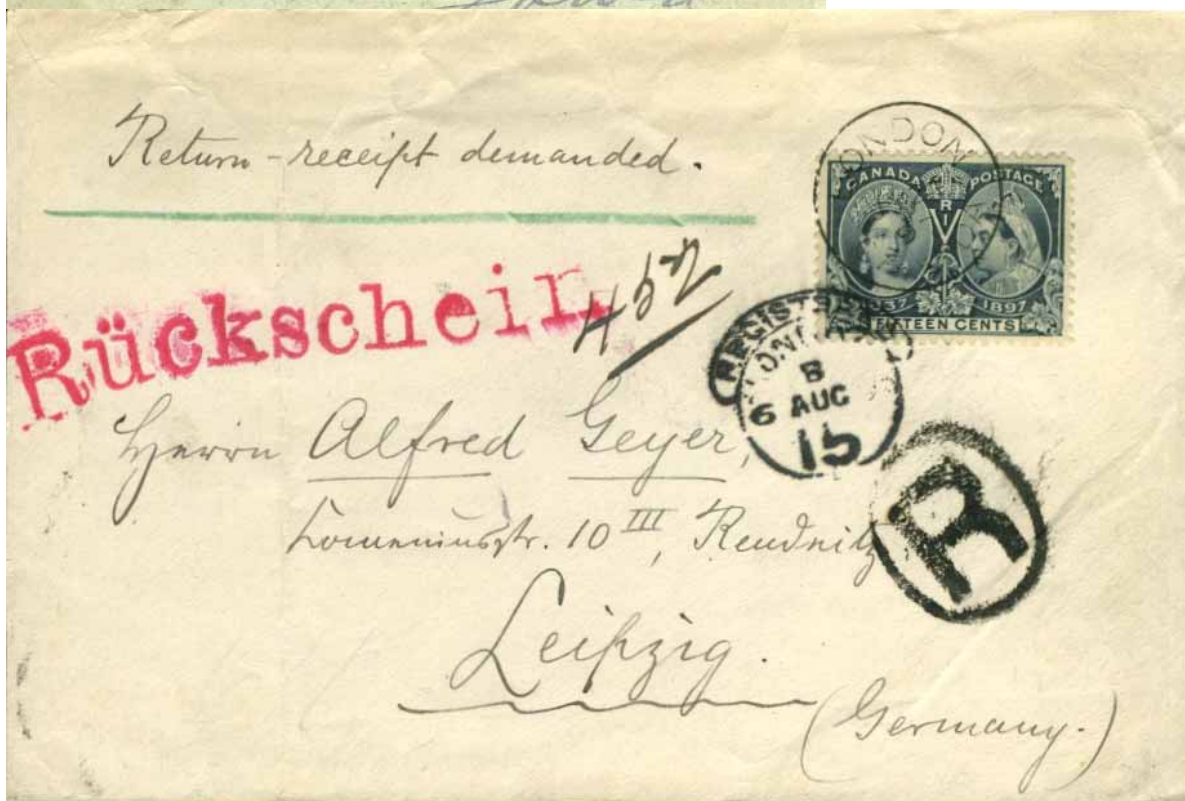 Return-receipt demanded.
LONDON
CANADA POSTAGE
V R I
1837 1897
FIFTEEN CENTS
Rückschein.
REGISTERED
LONDON
B
6 AUG
15
Herrn Alfred Geyer,
10 III, Reudnitz
R
Leipzig.
(Germany.)